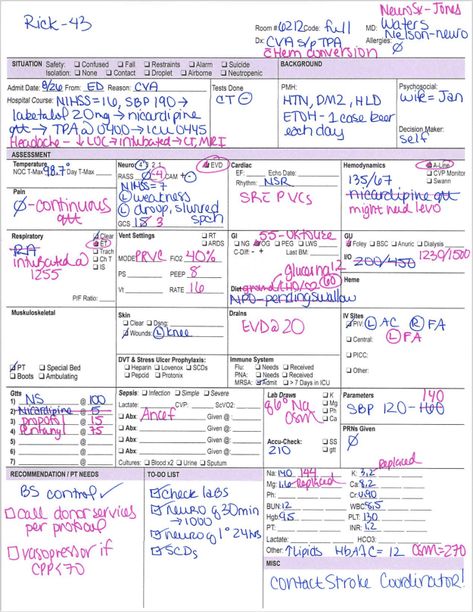 Rick-43
Room # 6212 Code: full
MD: NeuroSx-Jones
Waters
Nelson-neuro
Dx: CVA s/p TPA
c hem conversion
Allergies: Ø
SITUATION
Safety: Confused Fall Restraints Alarm Suicide
Isolation: None Contact Droplet Airborne Neutropenic
BACKGROUND
Admit Date: 8/26 From: ED Reason: CVA
Tests Done
CT -
Hospital Course: NIHSS=16, SBP 190→
labetalol 20mg → nicardipine
gtt → TPA @ 0400 → ICU 0445
Headache → ↓LOC → intubated → CT, MRI
PMH:
HTN, DM2, HLD
ETOH - 1 case beer
each day
Psychosocial:
wife = Jan
Decision Maker:
self
ASSESSMENT
Temperature
NOC T-Max 98.7° Day T-Max
Pain
Ø-continuous
gtt
Neuro q 4 2 1 EVD
RASS 0 -4 CAM
NIHSS = 7
L weakness
L droop, slurred
speech
GCS 15 3
Cardiac
EF: Echo Date:
Rhythm: NSR
SR c PVCs
Hemodynamics A-Line
135/67 CVP Monitor
Swan
nicardipine gtt
might need levo
Respiratory Clear
RA ET
Trach
Ch T
IS
intubated @
1255
P/F Ratio:
Vent Settings RT
ARDS
MODE PRVC FiO2 40%
PS PEEP 8
TV RATE 16
GI 55-OK to use
NG OG PEG LWS
C-Diff + Last BM:
glucerna 1.2
Diet: ground CHO/♡ @60
NPO-pending swallow
GU
Foley BSC Anuric Dialysis
I/O 200/450 1230/1500
Heme
Musculoskeletal
PT Special Bed
Boots Ambulating
Skin
Clear Dsng:
Wounds: L knee
DVT & Stress Ulcer Prophylaxis:
Heparin Lovenox SCDs
Pepcid Protonix
Drains
EVD @ 20
Immune System
Flu: Needs Received
PNA: Needs Received
MRSA: Admit > 7 Days in ICU
IV Sites
PIV: L AC R FA
Central: L FA
PICC:
Other:
Gtts
1) NS @ 100
2) Nicardipine @ 5
3) propofol @ 15
4) fentanyl @ 75
5) @
6) @
Sepsis Infection Simple Severe
Lactate: CVP: ScVO2:
Abx: Ancef Given @:
Abx: Given @:
Abx: Given @:
Abx: Given @:
Cultures: Blood x2 Urine Sputum
Lab Draws K
q6° Na Mg
Osm Ca
Ph
Accu-Check: SS
210 gtt
Parameters 140
SBP 120-160
PRNs Given
Ø
RECOMMENDATION / PT NEEDS
BS control ✓
call donor services
per protocol
vasopressor if
CPP<70
TO-DO LIST
check labs
neuro q 30 min
→ 1000
neuro q 1° 24 hrs
SCDs
Na: 140 144 K: 3.2 Replaced
Mg: 1.6 Replaced Ca: 8.2
Ph: Cr: 0.90
BUN: 12 WBC: 8.5
Hgb: 9.5 PLT: 130
PT: INR: 1.2
Lactate: HCO3:
Other: ↑ Lipids HbA1C = 12 OSM=270
MISC
contact Stroke Coordinator!